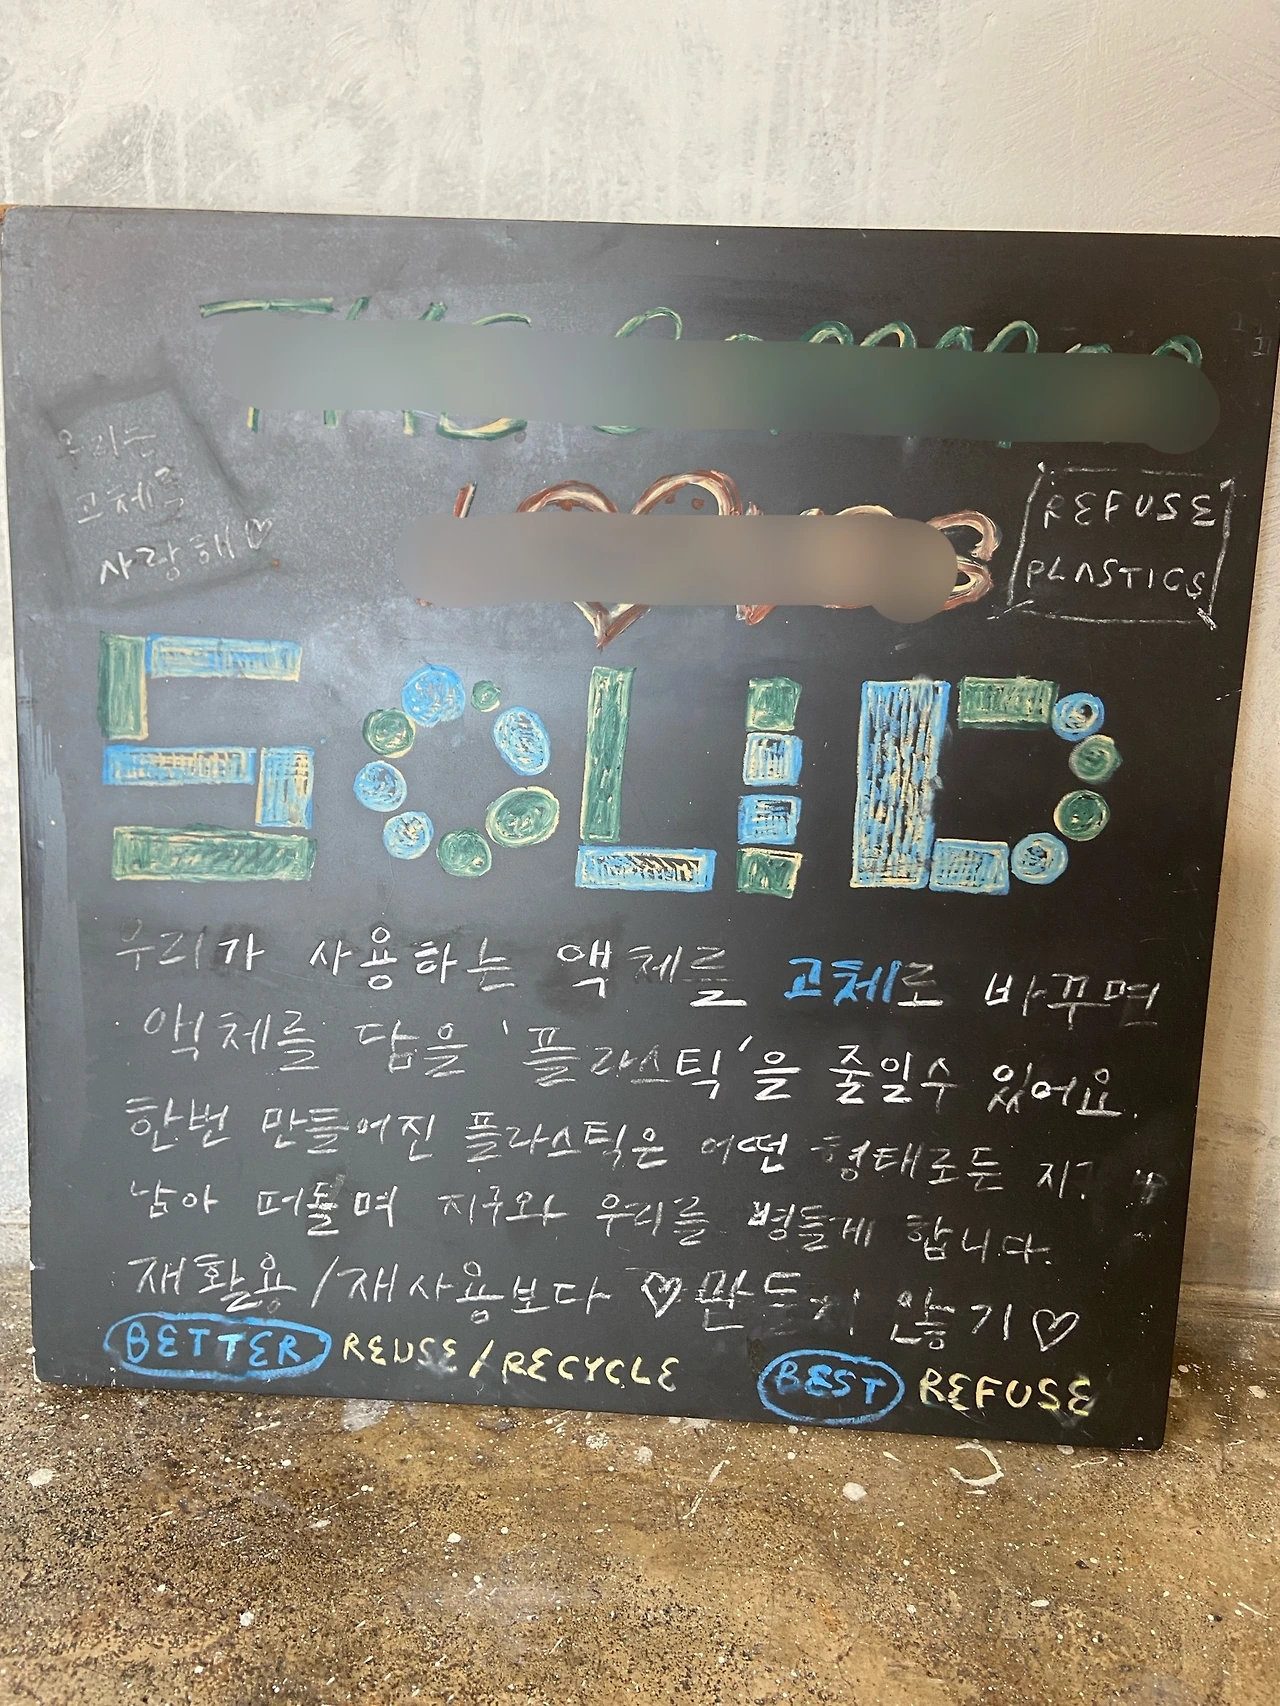 우리는
고체를
사랑해♡
REFUSE
PLASTICS
SOLID
우리가 사용하는 액체를 고체로 바꾸면
액체를 담을 '플라스틱'을 줄일수 있어요.
한번 만들어진 플라스틱은 어떤 형태로든
남아 떠돌며 지구와 우리를 병들게 합니다.
재활용/재사용보다 ♡만들지 않기♡
BETTER REUSE/RECYCLE BEST REFUSE